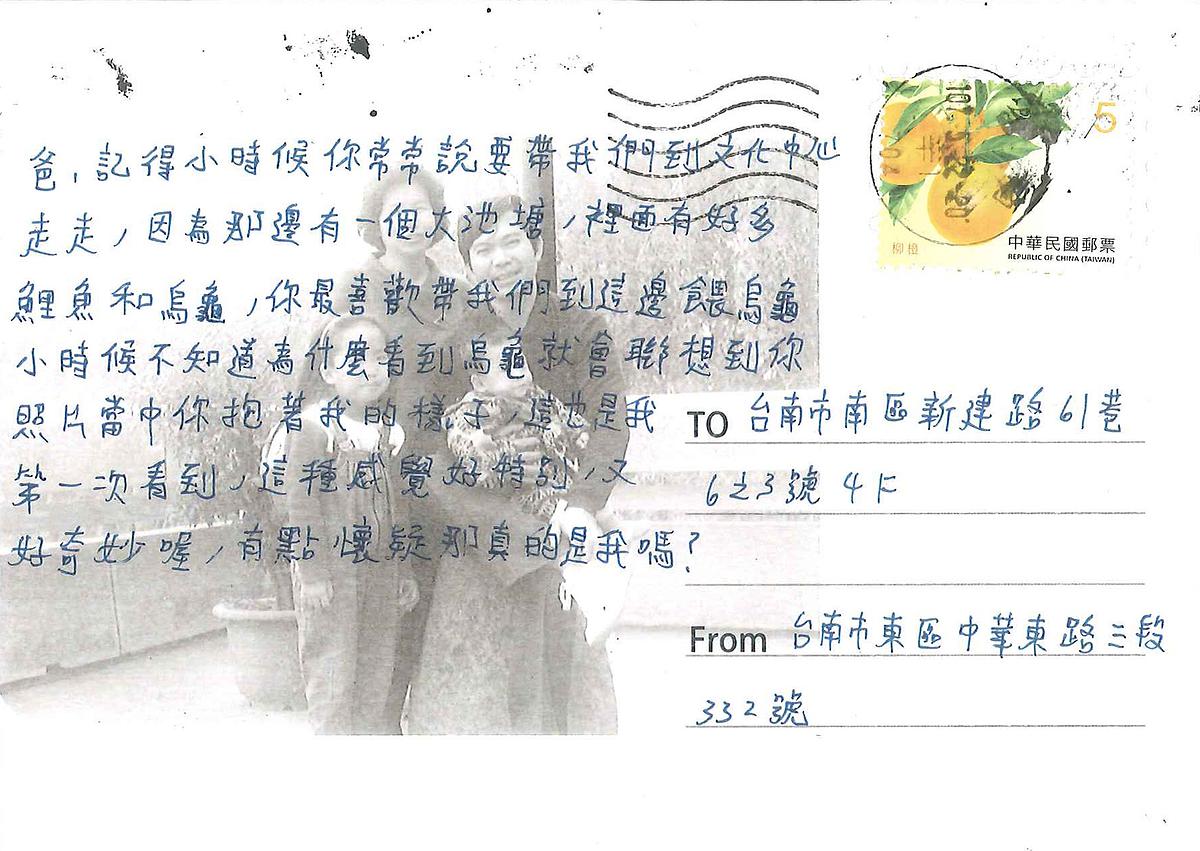 爸，記得小時候你常常說要帶我們到文化中心
走走，因為那邊有一個大池塘，裡面有好多
鯉魚和烏龜，你最喜歡帶我們到這邊餵烏龜
小時候不知道為什麼看到烏龜就會聯想到你
照片當中你抱著我的樣子，這也是我
第一次看到，這種感覺好特別，又
好奇妙喔，有點懷疑那真的是我嗎？
5
柳橙
中華民國郵票
REPUBLIC OF CHINA (TAIWAN)
TO 台南市南區新建路61巷
6之3號4F
From 台南市東區中華東路三段
332號